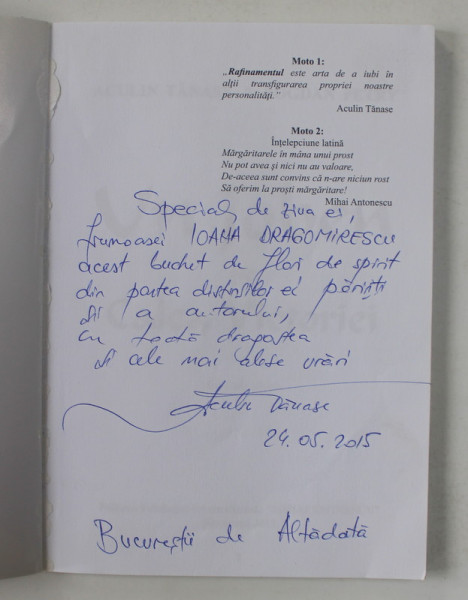 Moto 1:
„Rafinamentul este arta de a iubi în
alții transfigurarea propriei noastre
personalități.”
Aculin Tănase
Moto 2:
Înțelepciune latină
Mărgăritarele în mâna unui prost
Nu pot avea și nici nu au valoare,
De-aceea sunt convins că n-are niciun rost
Să oferim la proști mărgăritare!
Mihai Antonescu
Special, de ziua ei,
frumoasei IOANA DRAGOMIRESCU
acest buchet de flori de spirit
din partea distinșilor ei părinți
și a autorului,
cu toată dragostea
și ale mai alese urări
Aculin Tănase
24.05.2015
Bucureștii de Altădată